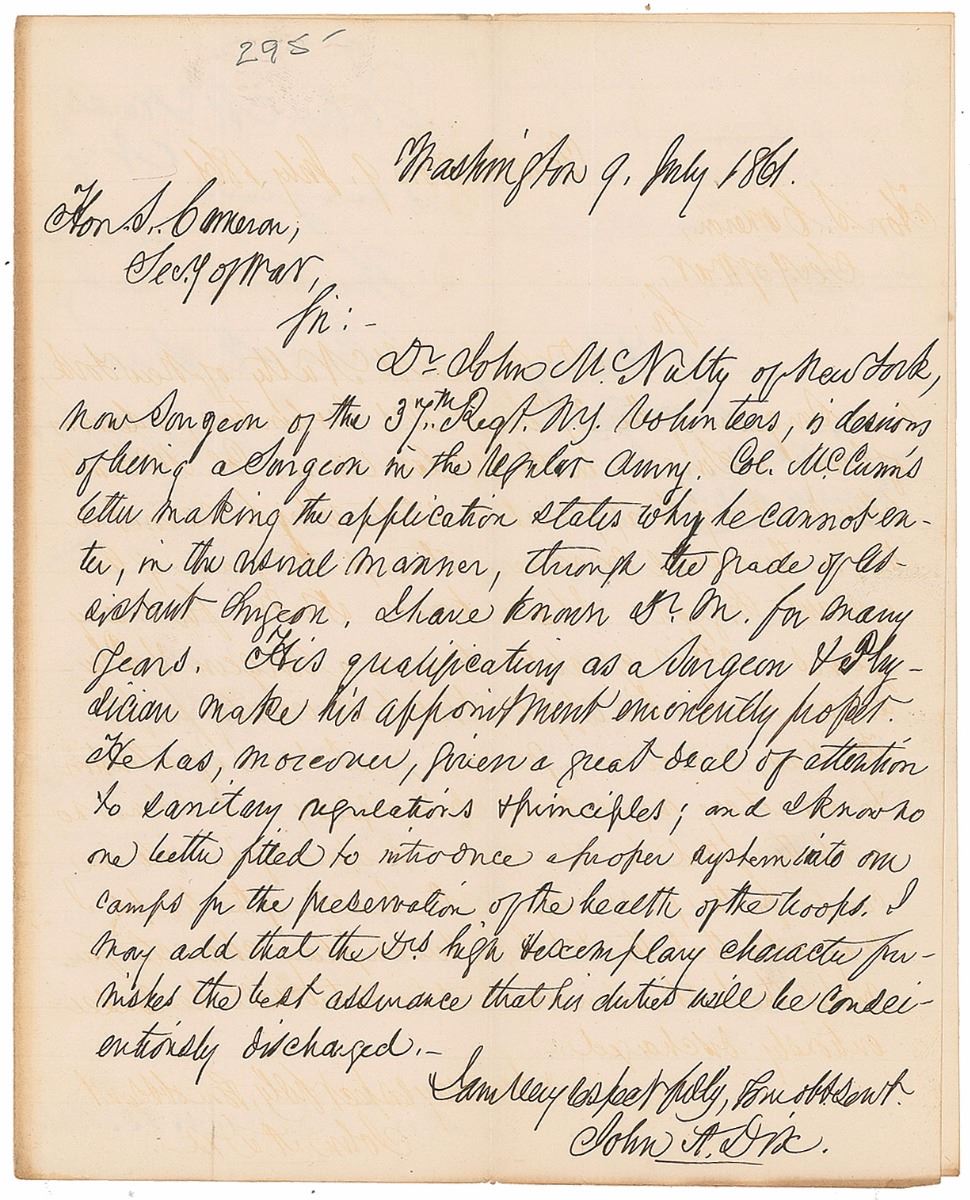 295
Washington 9. July 1861.
Hon. S. Cameron,
Secy of War,
Sir:-
Dr John McNulty of New York,
now Surgeon of the 37th Regt. N.Y. Volunteers, is desirous
of being a Surgeon in the regular army. Col. McCunn's
letter making the application states why he cannot en-
ter, in the usual manner, through the grade of As-
sistant Surgeon. I have known Dr. M. for many
years. His qualifications as a Surgeon & Phy-
sician make his appointment eminently proper.
He has, moreover, given a great deal of attention
to sanitary regulations & principles; and I know no
one better fitted to introduce a proper system into our
camps for the preservation of the health of the troops. I
may add that the Drs high & exemplary character fur-
nishes the best assurance that his duties will be consci-
entiously discharged.-
I am very respectfully, Your obt. servt.
John A. Dix.